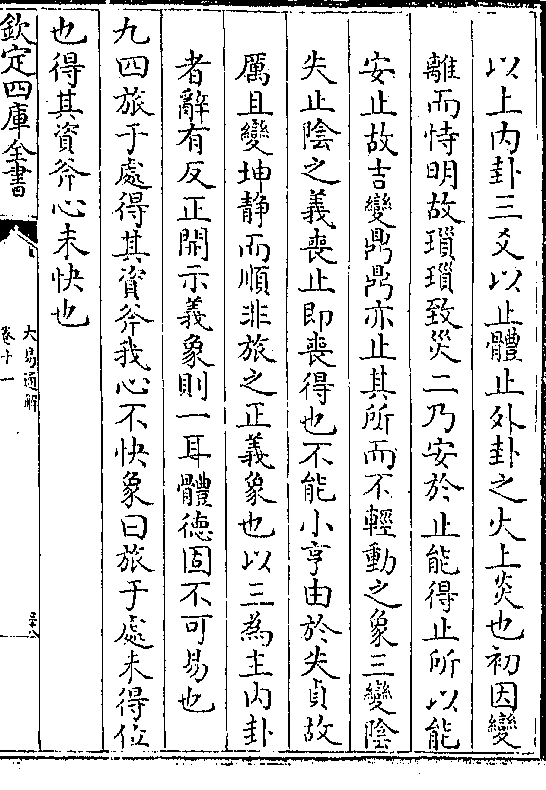 以上内卦三爻以止體止外卦之火上炎也初因變
離而恃明故瑣瑣致災二乃安於止能得止所以能
安止故吉變鼎鼎亦止其所而不輕動之象三變陰
失止陰之義喪止即喪得也不能小亨由於失貞故
厲且變坤静而順非旅之正義象也以三為主内卦
者辭有反正開示義象則一耳體德固不可易也
九四旅于處得其資斧我心不快象曰旅于處未得位
也得其資斧心未快也
欽定四庫全書
大易通解
卷十一